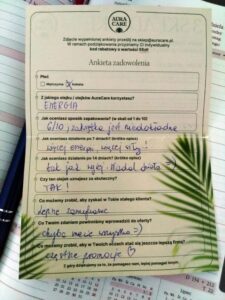 AURA
CARE
Zdjęcie wypełnionej ankiety prześlij na sklep@auracare.pl.
W ramach podziękowania przyznamy Ci indywidualny
kod rabatowy o wartości 50zł!
Ankieta zadowolenia
Płeć
Mężczyzna Kobieta
Z jakiego olejku i olejków AuraCare korzystasz?
ENERGIA
Jak oceniasz sposób zapakowania? (w skali od 1 do 10)
6/10, zakrętka jest niedokładna
Jak oceniasz działanie po 7 dniach? (krótki opis)
więcej energii, więcej siły!
Jak oceniasz działanie po 14 dniach? (krótki opis)
tak jak wyżej. Nadal działa :)
Czy ten olejek uznajesz za skuteczny?
TAK!
Co możemy zrobić, aby zyskać w Tobie stałego klienta?
lepsze zamykanie
Co Twoim zdaniem powinniśmy wprowadzić do oferty?
chyba macie wszystko =)
Co możemy zrobić, aby w Twoich oczach stać się jeszcze lepszą firmą?
częstsze promocje
Z góry dziękujemy za to, że pomagasz nam, lepiej pomagać innym.